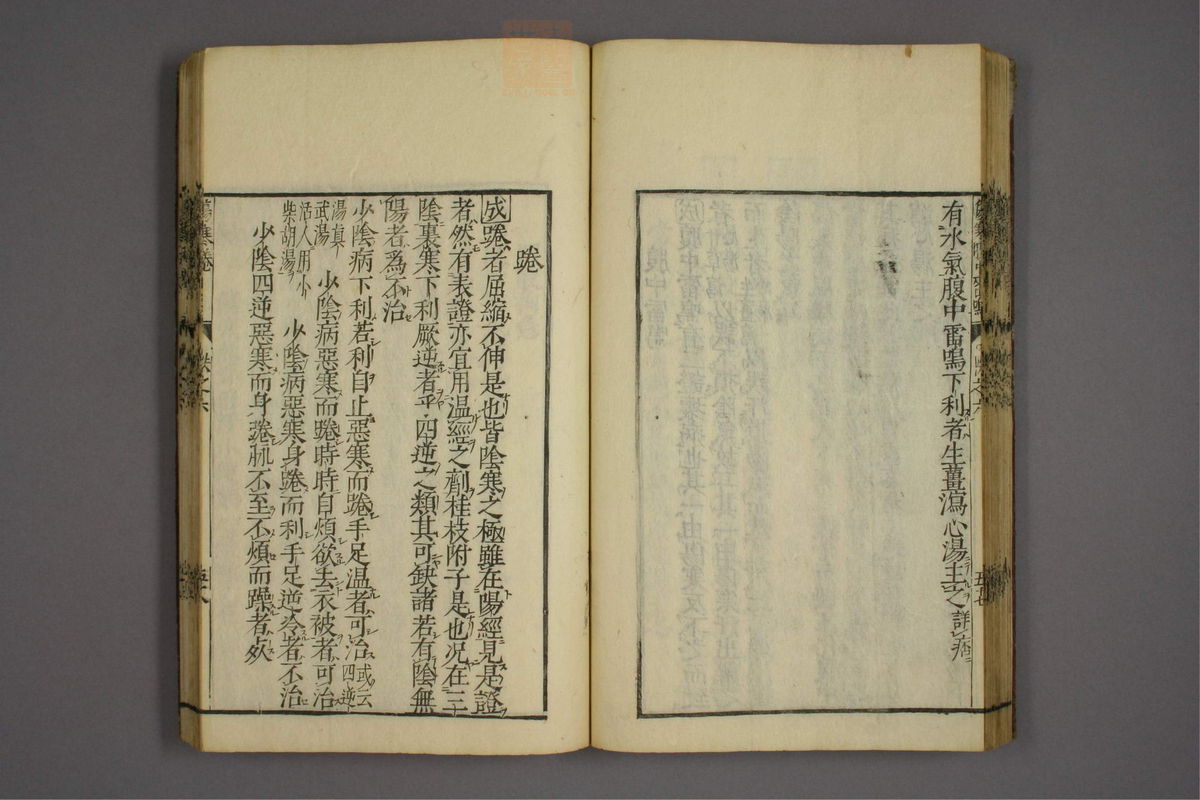 有水氣腹中雷鳴下利者生薑瀉心湯主之詳痞
踡
成踡者屈縮不伸是也皆陰寒之極雖在陽經見是證
者然有表證亦宜用溫經之劑桂枝附子是也况在三
陰裏寒下利厥逆者乎四逆之類其可缺諸若有陰無
陽者爲不治
少陰病下利若利自止惡寒而踡手足溫者可治或云四逆
湯真
武湯 少陰病惡寒而踡時時自煩欲去衣被者可治
活人用小
柴胡湯 少陰病惡寒身踡而利手足逆冷者不治
少陰四逆惡寒而身踡脈不至不煩而躁者死